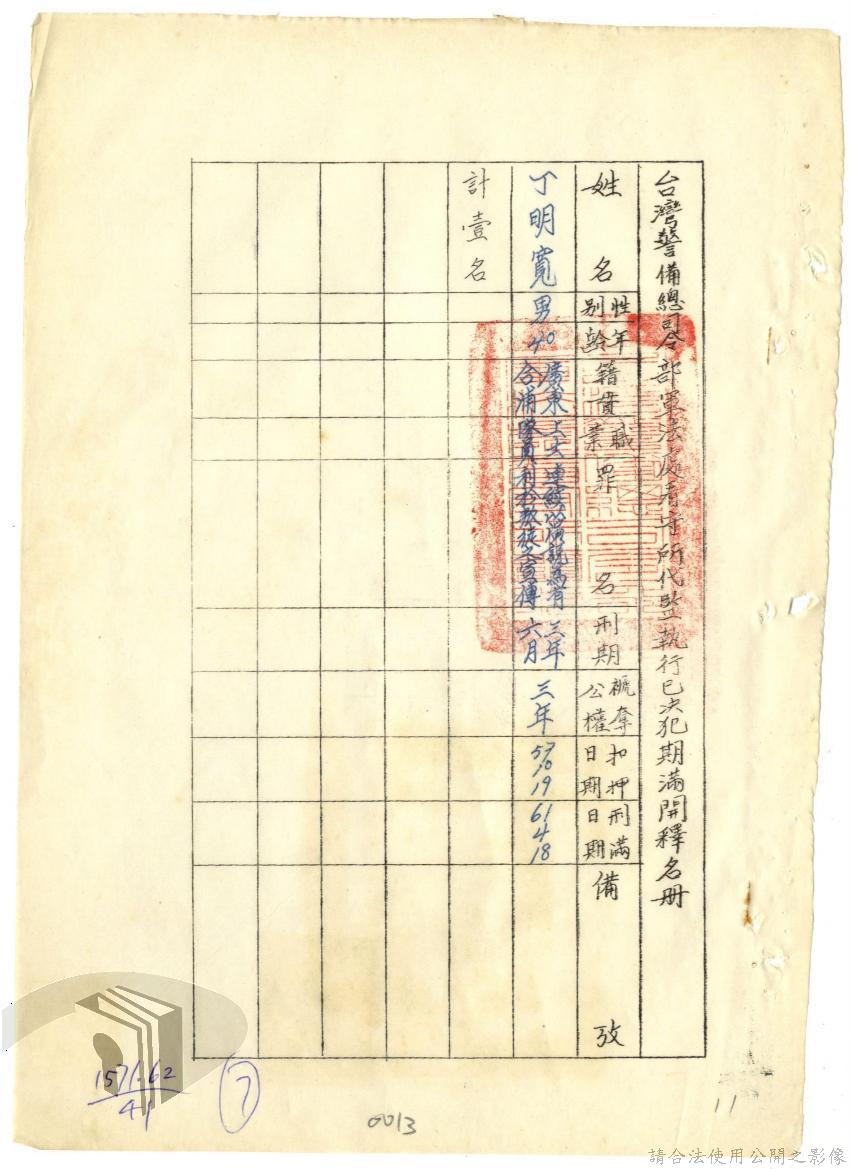 台灣警備總司令部軍法處看守所代監執行已決犯期滿開釋名册
姓名
性別
年齡
籍貫
職業
罪名
刑期
褫奪公權
扣押日期
刑滿日期
備攷
丁明寬
男
40
廣東合浦
上大隊員
連續以演說為有利於叛徒之宣傳
三年六月
三年
57 10 19
61 4 18
計壹名
1571.62
41
7
0013
11
請合法使用公開之影像